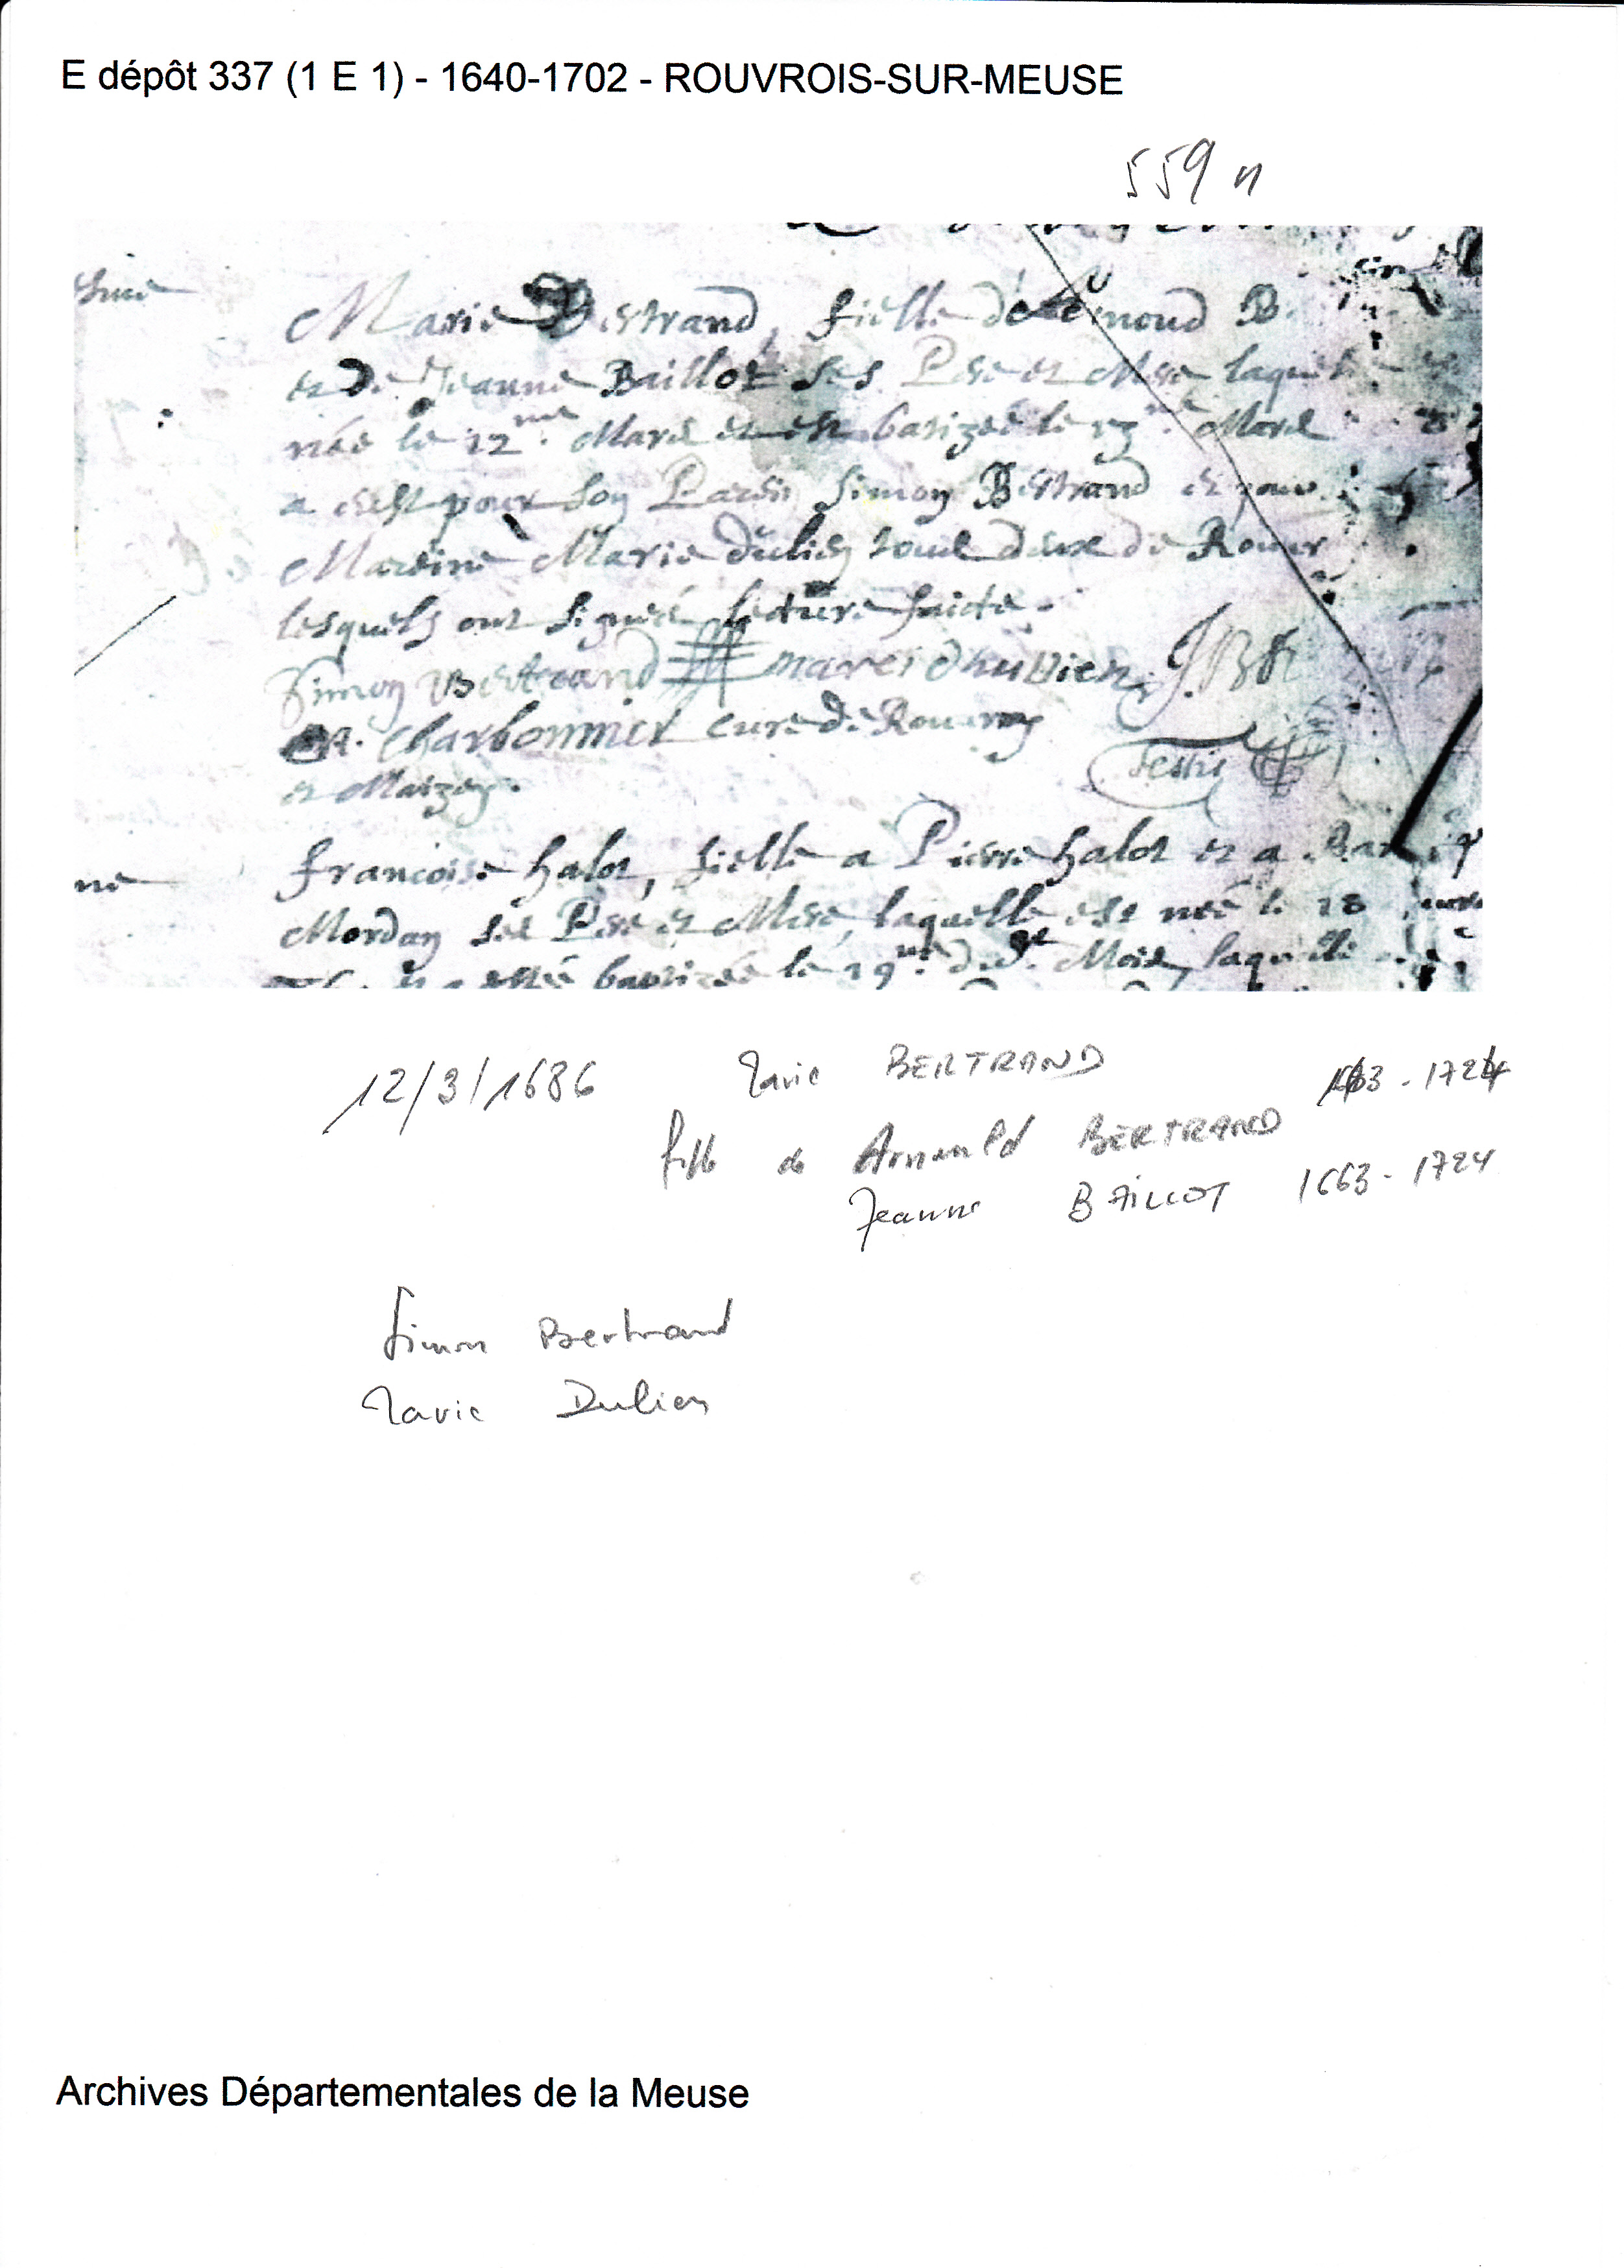 E dépôt 337 (1 E 1) - 1640-1702 - ROUVROIS-SUR-MEUSE
559 n
Marie Bertrand, fielle de B
et De Jeanne Baillot ses Pere et Mere laquelle
née le 12me. Mars et est batizée le 13e. Mars
a pour son Parin Simon Bertrand et pour
Mareine Marie dulien tous deux de Rouvr
lesquels ont signé lecture faicte.
Simon Bertrand marei dhullien
Charbonnier curé de Rouvroy
et Maizey.
Testis
francoise halot, fielle a Pierre halot et a
Morday ses Pere et Mere, laquelle est née le 18
esté baptizée le 19me. dud. Mois, laquelle
12/3/1686 Marie BERTRAND
1663 - 1724
fille de Arnould BERTRAND
Jeanne BAILLOT 1663 - 1724
Simon Bertrand
Marie Dulien
Archives Départementales de la Meuse